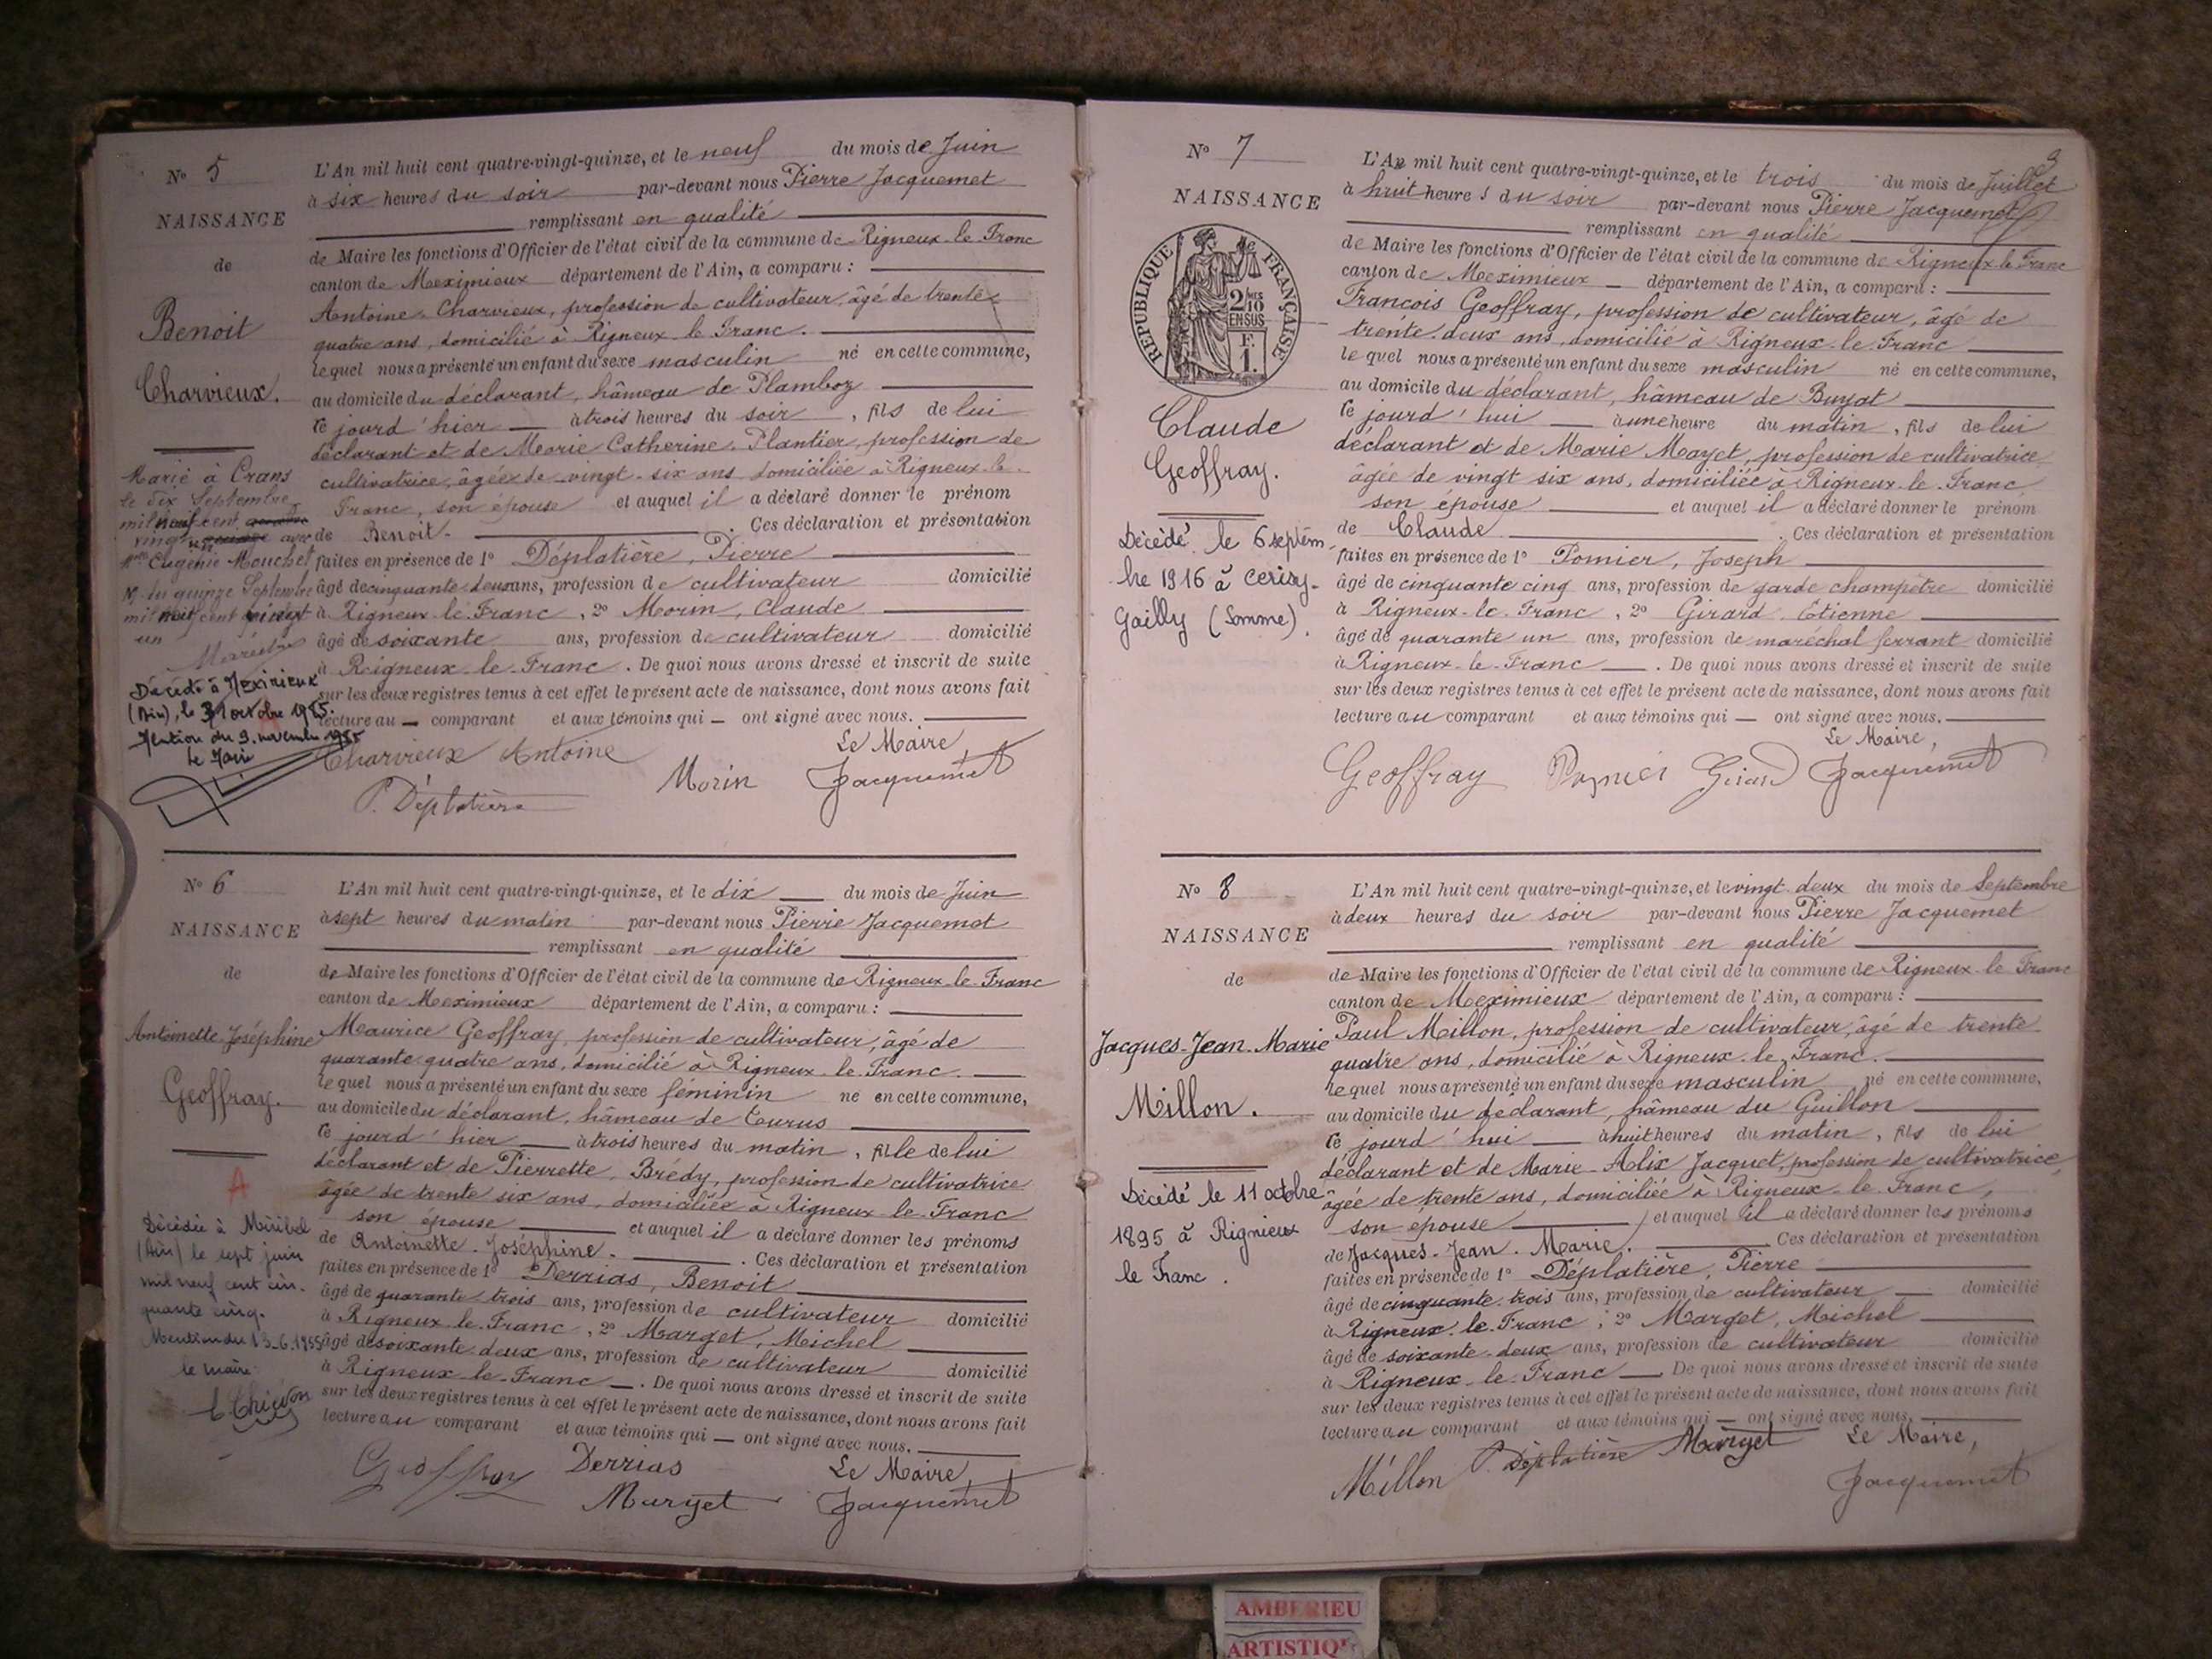 N° 5
NAISSANCE
de
Benoit
Charvieux.
Marié à Crans
le six Septembre
mil neuf cent
vingt un avec
Eugénie Mouchet
du quinze Septembre
mil neuf cent vingt
un
Décédé à Meximieux
(Ain), le 31 octobre 1955.
Mention du 9 novembre 1955
Le Maire
L'An mil huit cent quatre-vingt-quinze, et le neuf du mois de Juin
à six heures du soir par-devant nous Pierre Jacquemet
remplissant en qualité
de Maire les fonctions d'Officier de l'état civil de la commune de Rigneux-le-Franc
canton de Meximieux département de l'Ain, a comparu :
Antoine Charvieux, profession de cultivateur, âgé de trente
quatre ans, domicilié à Rigneux-le-Franc.
lequel nous a présenté un enfant du sexe masculin né en cette commune,
au domicile du déclarant, hâmeau de Plamboz
ce jourd'hier à trois heures du soir, fils de lui
déclarant et de Marie Catherine Plantier, profession de
cultivatrice, âgée de vingt-six ans domiciliée à Rigneux-le-
Franc, son épouse et auquel il a déclaré donner le prénom
de Benoit. Ces déclaration et présentation
faites en présence de 1° Déplatière, Pierre
âgé de cinquante deux ans, profession de cultivateur domicilié
à Rigneux-le-Franc, 2° Morin, Claude
âgé de soixante ans, profession de cultivateur domicilié
à Rigneux-le-Franc. De quoi nous avons dressé et inscrit de suite
sur les deux registres tenus à cet effet le présent acte de naissance, dont nous avons fait
lecture au comparant et aux témoins qui ont signé avec nous.
Charvieux Antoine
Morin
Le Maire,
Jacquemet
P. Déplatière
N° 6
NAISSANCE
de
Antoinette-Joséphine
Geoffray.
A
Décédée à Miribel
(Ain) le sept juin
mil neuf cent cin-
quante cinq.
Mention du 13-6-1955
le maire
L'An mil huit cent quatre-vingt-quinze, et le dix du mois de Juin
à sept heures du matin par-devant nous Pierre Jacquemet
remplissant en qualité
de Maire les fonctions d'Officier de l'état civil de la commune de Rigneux-le-Franc
canton de Meximieux département de l'Ain, a comparu :
Maurice Geoffray, profession de cultivateur, âgé de
quarante quatre ans, domicilié à Rigneux-le-Franc.
lequel nous a présenté un enfant du sexe féminin né en cette commune,
au domicile du déclarant, hâmeau de Courus
ce jourd'hier à trois heures du matin, fille de lui
déclarant et de Pierrette Brédy, profession de cultivatrice
âgée de trente six ans, domiciliée à Rigneux-le-Franc
son épouse et auquel il a déclaré donner les prénoms
de Antoinette-Joséphine. Ces déclaration et présentation
faites en présence de 1° Derrias, Benoit
âgé de quarante-trois ans, profession de cultivateur domicilié
à Rigneux-le-Franc, 2° Marget, Michel
âgé de soixante-deux ans, profession de cultivateur domicilié
à Rigneux-le-Franc. De quoi nous avons dressé et inscrit de suite
sur les deux registres tenus à cet effet le présent acte de naissance, dont nous avons fait
lecture au comparant et aux témoins qui ont signé avec nous.
Geoffray
Derrias
Le Maire,
Marget
Jacquemet
3
N° 7
NAISSANCE
RÉPUBLIQUE FRANÇAISE
2/10 EN SUS
F. 1.
Claude
Geoffray.
Décédé le 6 septem-
bre 1916 à Cerisy-
Gailly (Somme).
L'An mil huit cent quatre-vingt-quinze, et le trois du mois de Juillet
à huit heures du soir par-devant nous Pierre Jacquemet
remplissant en qualité
de Maire les fonctions d'Officier de l'état civil de la commune de Rigneux-le-Franc
canton de Meximieux département de l'Ain, a comparu :
Francois Geoffray, profession de cultivateur, âgé de
trente-deux ans, domicilié à Rigneux-le-Franc
lequel nous a présenté un enfant du sexe masculin né en cette commune,
au domicile du déclarant, hâmeau de Buyat
ce jourd'hui à une heure du matin, fils de lui
déclarant et de Marie Mayet, profession de cultivatrice
âgée de vingt six ans, domiciliée à Rigneux-le-Franc,
son épouse et auquel il a déclaré donner le prénom
de Claude. Ces déclaration et présentation
faites en présence de 1° Pomier, Joseph
âgé de cinquante cinq ans, profession de garde champêtre domicilié
à Rigneux-le-Franc, 2° Girard Étienne
âgé de quarante un ans, profession de maréchal ferrant domicilié
à Rigneux-le-Franc. De quoi nous avons dressé et inscrit de suite
sur les deux registres tenus à cet effet le présent acte de naissance, dont nous avons fait
lecture au comparant et aux témoins qui ont signé avec nous.
Le Maire,
Geoffray Pomier Girard Jacquemet
N° 8
NAISSANCE
de
Jacques-Jean-Marie
Millon.
Décédé le 11 octobre
1895 à Rignieux
le Franc.
L'An mil huit cent quatre-vingt-quinze, et le vingt-deux du mois de Septembre
à deux heures du soir par-devant nous Pierre Jacquemet
remplissant en qualité
de Maire les fonctions d'Officier de l'état civil de la commune de Rigneux-le-Franc
canton de Meximieux département de l'Ain, a comparu :
Paul Millon, profession de cultivateur, âgé de trente
quatre ans, domicilié à Rigneux-le-Franc.
lequel nous a présenté un enfant du sexe masculin né en cette commune,
au domicile du déclarant, hâmeau du Guillon
ce jourd'hui à huit heures du matin, fils de lui
déclarant et de Marie-Alix Jacquet, profession de cultivatrice,
âgée de trente ans, domiciliée à Rigneux-le-Franc,
son épouse et auquel il a déclaré donner les prénoms
de Jacques-Jean-Marie. Ces déclaration et présentation
faites en présence de 1° Déplatière, Pierre
âgé de cinquante-trois ans, profession de cultivateur domicilié
à Rigneux-le-Franc, 2° Marget, Michel
âgé de soixante-deux ans, profession de cultivateur domicilié
à Rigneux-le-Franc. De quoi nous avons dressé et inscrit de suite
sur les deux registres tenus à cet effet le présent acte de naissance, dont nous avons fait
lecture au comparant et aux témoins qui ont signé avec nous.
Millon P. Déplatière Marget Le Maire,
Jacquemet
AMBERIEU
ARTISTIQU